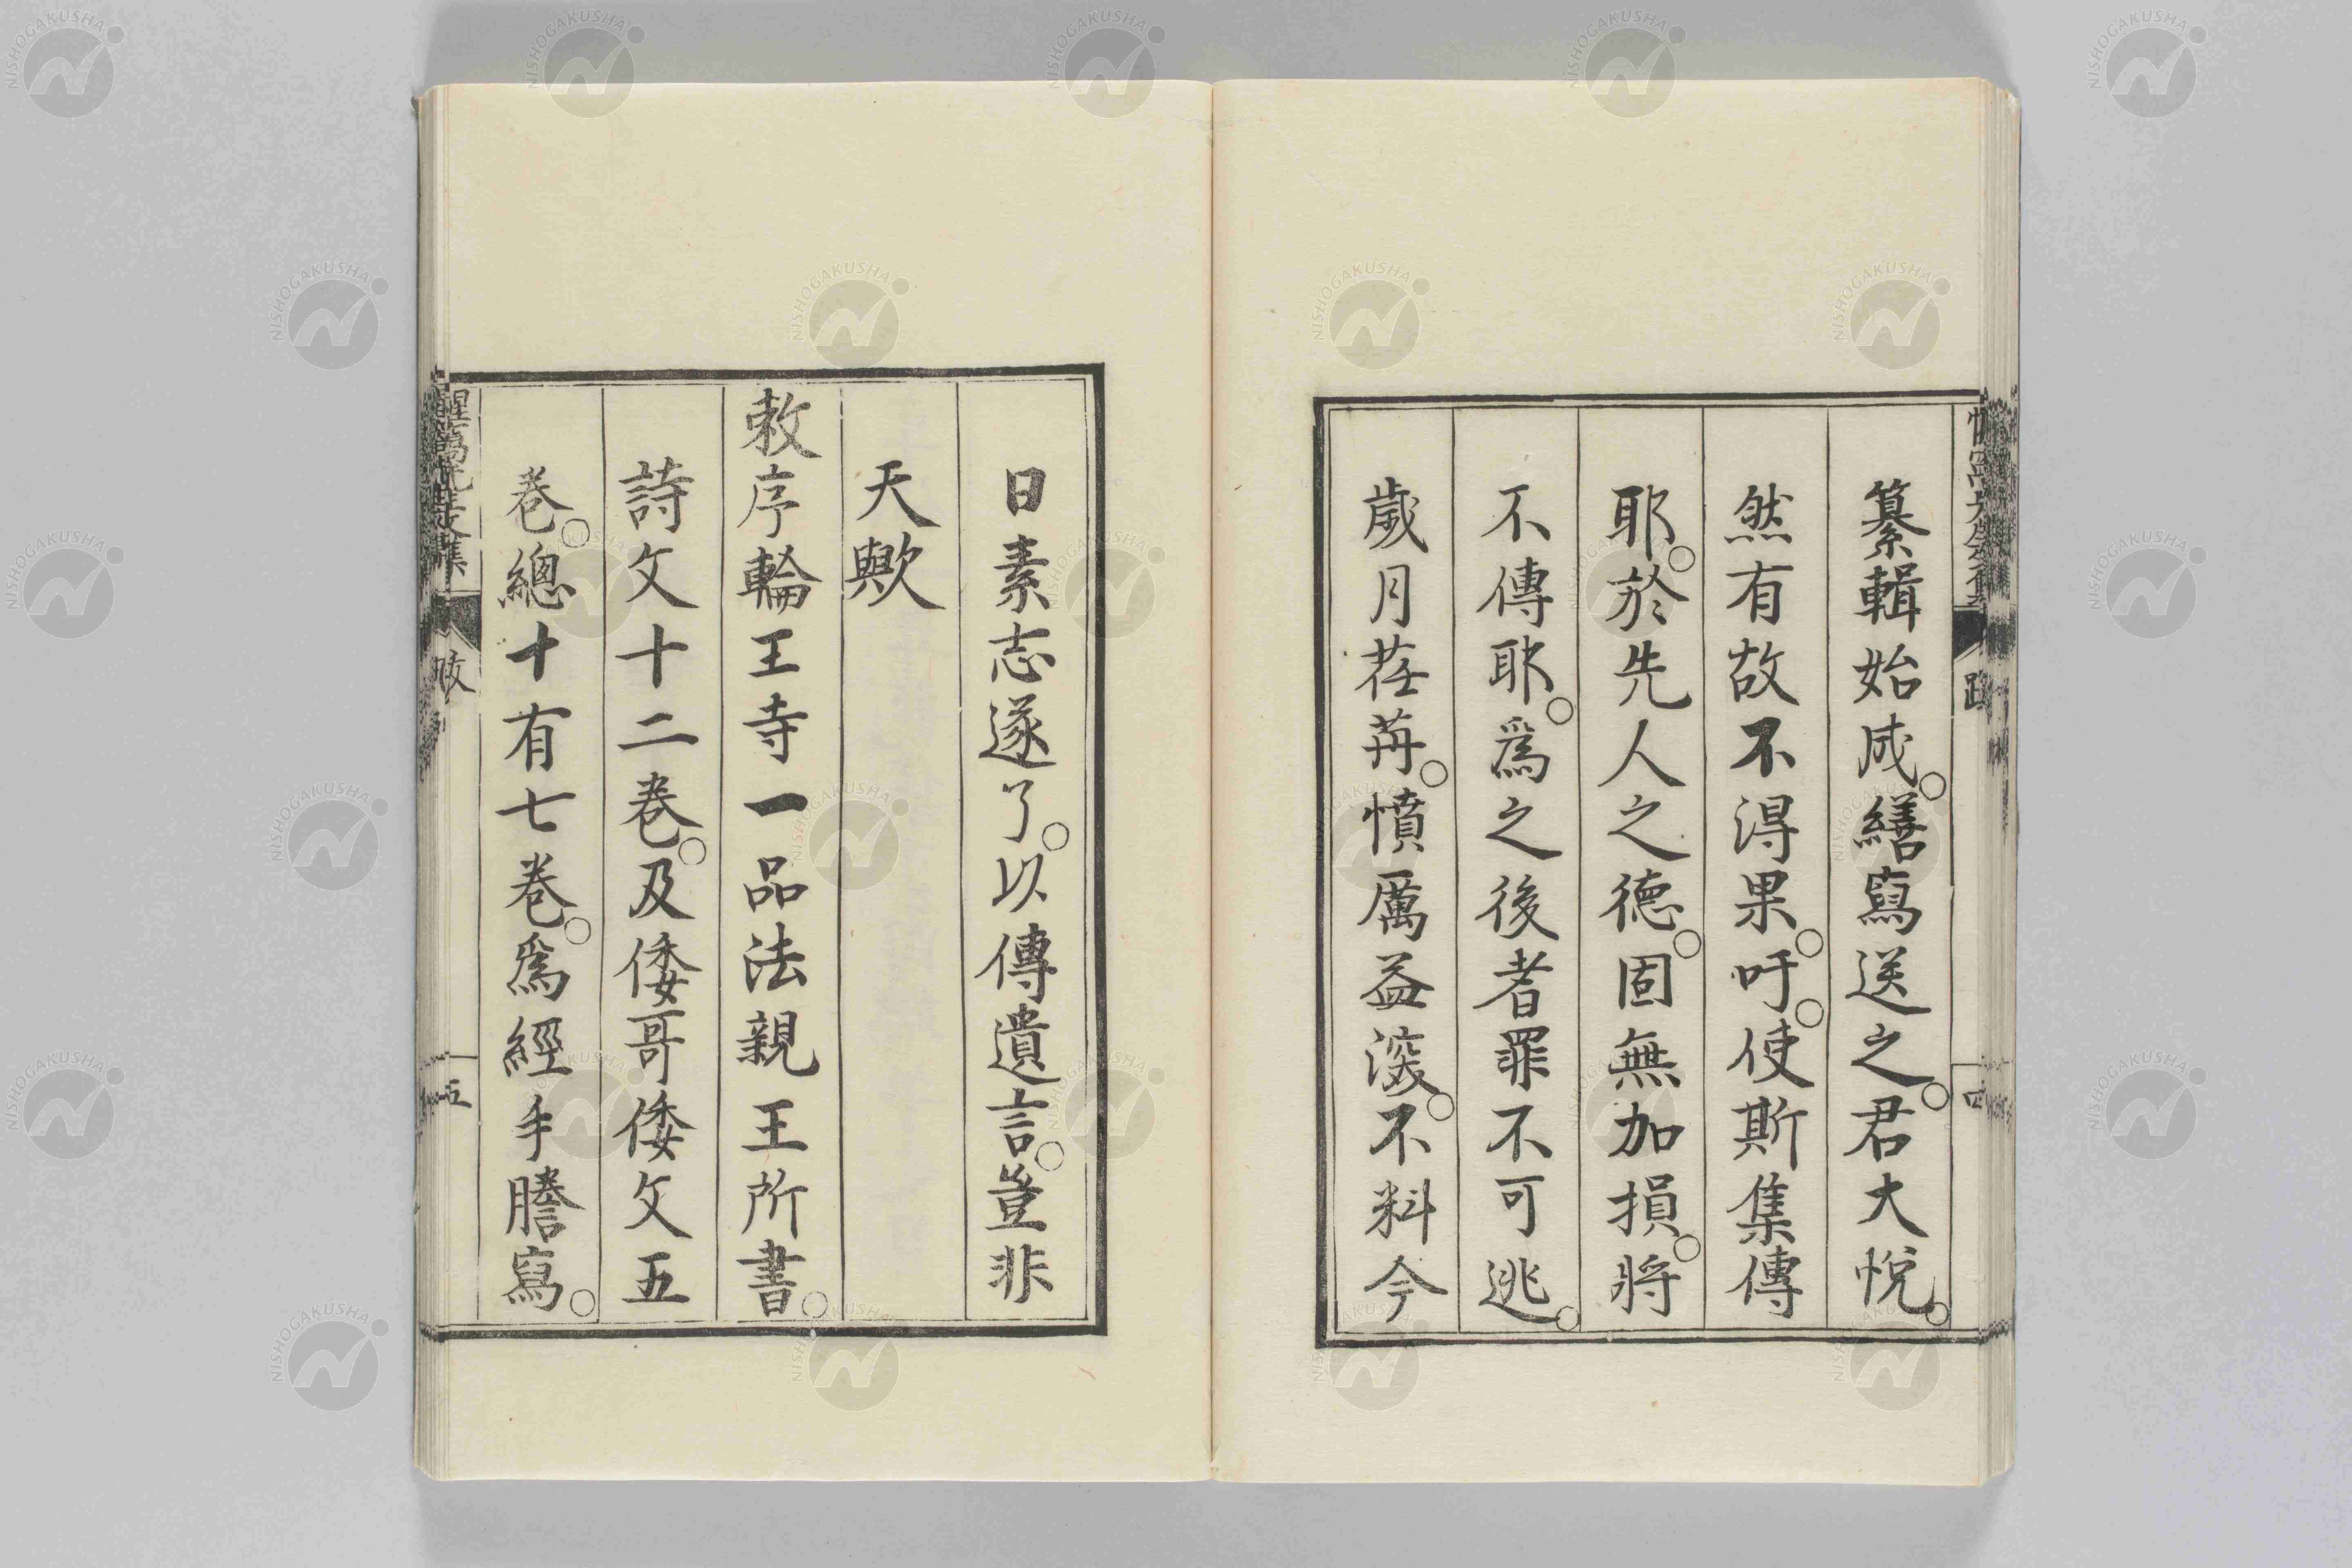 纂輯始成。繕寫送之。君大悅。
然有故不得果。吁。使斯集傳
耶。於先人之德。固無加損。將
不傳耶。爲之後者罪不可逃。
歲月荏苒。憤厲益深。不料今
日素志遂了。以傳遺言。豈非
天歟
敕序輪王寺一品法親王所書。
詩文十二卷。及倭哥倭文五
卷。總十有七卷。爲經手謄寫。
跋
五
NISHOGAKUSHA